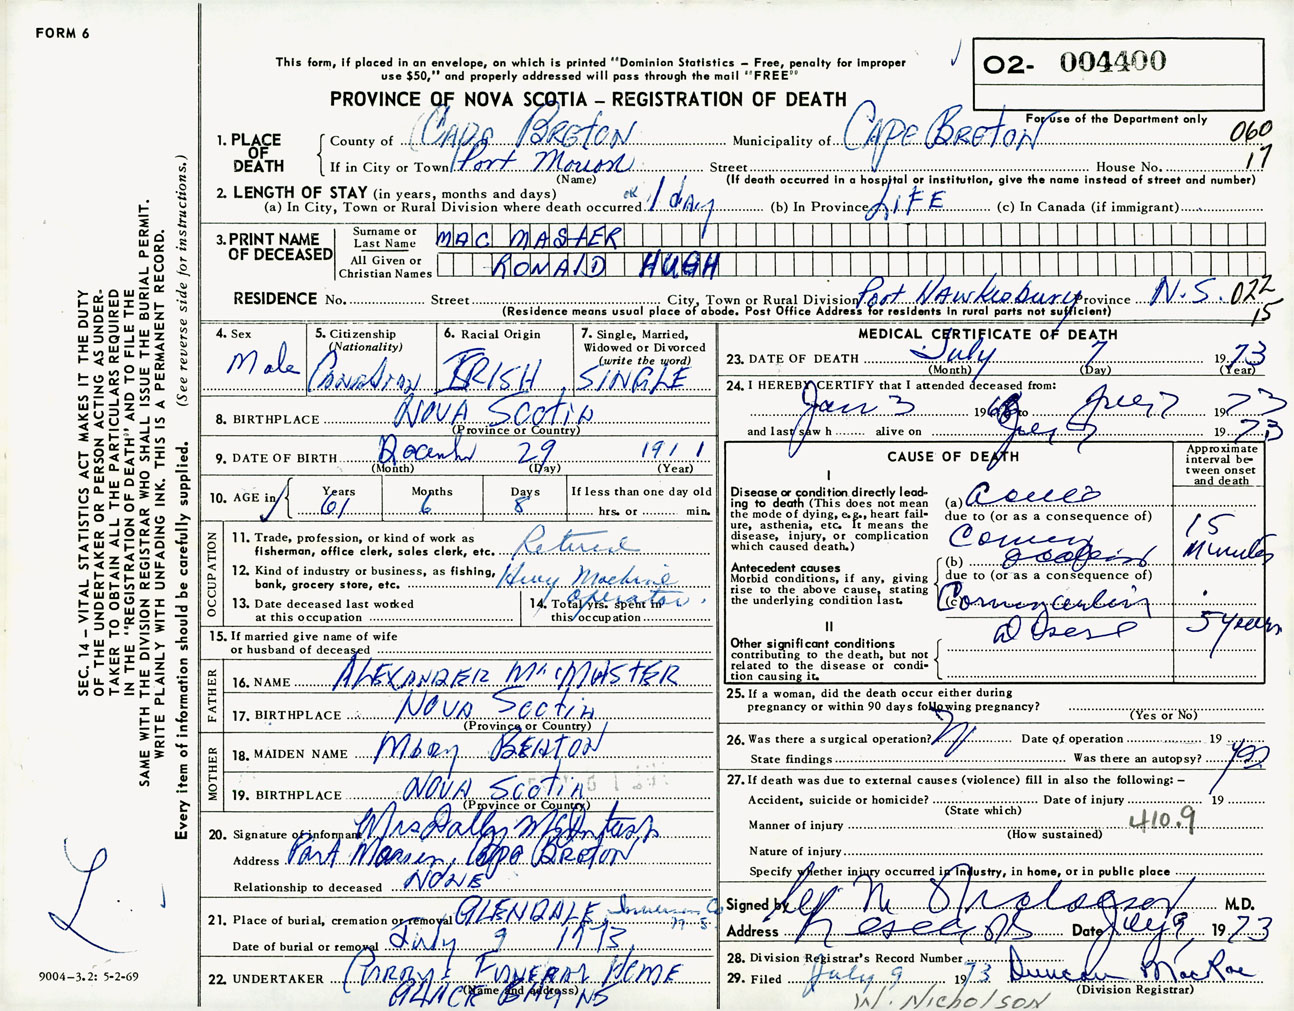 FORM 6
This form, if placed in an envelope, on which is printed "Dominion Statistics – Free, penalty for improper
use $50," and properly addressed will pass through the mail "FREE"
O2- 004400
PROVINCE OF NOVA SCOTIA – REGISTRATION OF DEATH
For use of the Department only
1. PLACE OF DEATH
County of Cape BRETON Municipality of CAPE BRETON 060
If in City or Town Port Morien Street House No. 17
(Name) (If death occurred in a hospital or institution, give the name instead of street and number)
2. LENGTH OF STAY (in years, months and days)
(a) In City, Town or Rural Division where death occurred 1 day (b) In Province LIFE (c) In Canada (if immigrant)
3. PRINT NAME OF DECEASED
Surname or Last Name MAC MASTER
All Given or Christian Names RONALD HUGH
RESIDENCE No. Street City, Town or Rural Division Port Hawkesbury Province N.S. 022
(Residence means usual place of abode. Post Office Address for residents in rural parts not sufficient) 15
4. Sex Male
5. Citizenship (Nationality) Canadian
6. Racial Origin IRISH
7. Single, Married, Widowed or Divorced (write the word) SINGLE
8. BIRTHPLACE NOVA SCOTIA
(Province or Country)
9. DATE OF BIRTH December 29 1911
(Month) (Day) (Year)
10. AGE in Years 61 Months 6 Days 8 If less than one day old hrs. or min.
OCCUPATION
11. Trade, profession, or kind of work as
fisherman, office clerk, sales clerk, etc. Retired
12. Kind of industry or business, as fishing,
bank, grocery store, etc. Hevy Machine operator.
13. Date deceased last worked
at this occupation
14. Total yrs. spent in
this occupation
15. If married give name of wife
or husband of deceased
FATHER
16. NAME ALEXANDER MacMASTER
17. BIRTHPLACE NOVA SCOTIA
(Province or Country)
MOTHER
18. MAIDEN NAME Mary BEATON
19. BIRTHPLACE NOVA SCOTIA
(Province or Country)
20. Signature of informant Mrs
Address Port Morien, Cape BRETON
Relationship to deceased NONE
21. Place of burial, cremation or removal GLENDALE, Inverness Co
Date of burial or removal July 9 1973,
22. UNDERTAKER FUNERAL HOME
(Name and address) GLACE BAY NS
MEDICAL CERTIFICATE OF DEATH
23. DATE OF DEATH July 7 1973
(Month) (Day) (Year)
24. I HEREBY CERTIFY that I attended deceased from:
Jan 3 196 to July 7 1973
and last saw h alive on July 7 1973
CAUSE OF DEATH
Approximate interval between onset and death
I
Disease or condition directly leading to death (This does not mean the mode of dying, e.g., heart failure, asthenia, etc. It means the disease, injury, or complication which caused death.)
(a) acute
due to (or as a consequence of)
15 Minutes
Antecedent causes
Morbid conditions, if any, giving rise to the above cause, stating the underlying condition last.
(b)
due to (or as a consequence of)
(c)
5 years
II
Other significant conditions
contributing to the death, but not related to the disease or condition causing it.
25. If a woman, did the death occur either during
pregnancy or within 90 days following pregnancy?
(Yes or No)
26. Was there a surgical operation? Date of operation 19
State findings Was there an autopsy? yes
27. If death was due to external causes (violence) fill in also the following: –
Accident, suicide or homicide? Date of injury 19
(State which)
Manner of injury 410.9
(How sustained)
Nature of injury
Specify whether injury occurred in industry, in home, or in public place
Signed by M.D.
Address Date July 9, 1973
28. Division Registrar's Record Number
29. Filed July 9 1973 Duncan MacRae
(Division Registrar)
W. NICHOLSON
SEC. 14 – VITAL STATISTICS ACT MAKES IT THE DUTY
OF THE UNDERTAKER OR PERSON ACTING AS UNDER-
TAKER TO OBTAIN ALL THE PARTICULARS REQUIRED
IN THE "REGISTRATION OF DEATH" AND TO FILE THE
SAME WITH THE DIVISION REGISTRAR WHO SHALL ISSUE THE BURIAL PERMIT.
WRITE PLAINLY WITH UNFADING INK. THIS IS A PERMANENT RECORD.
Every item of information should be carefully supplied. (See reverse side for instructions.)
9004–3.2: 5-2-69